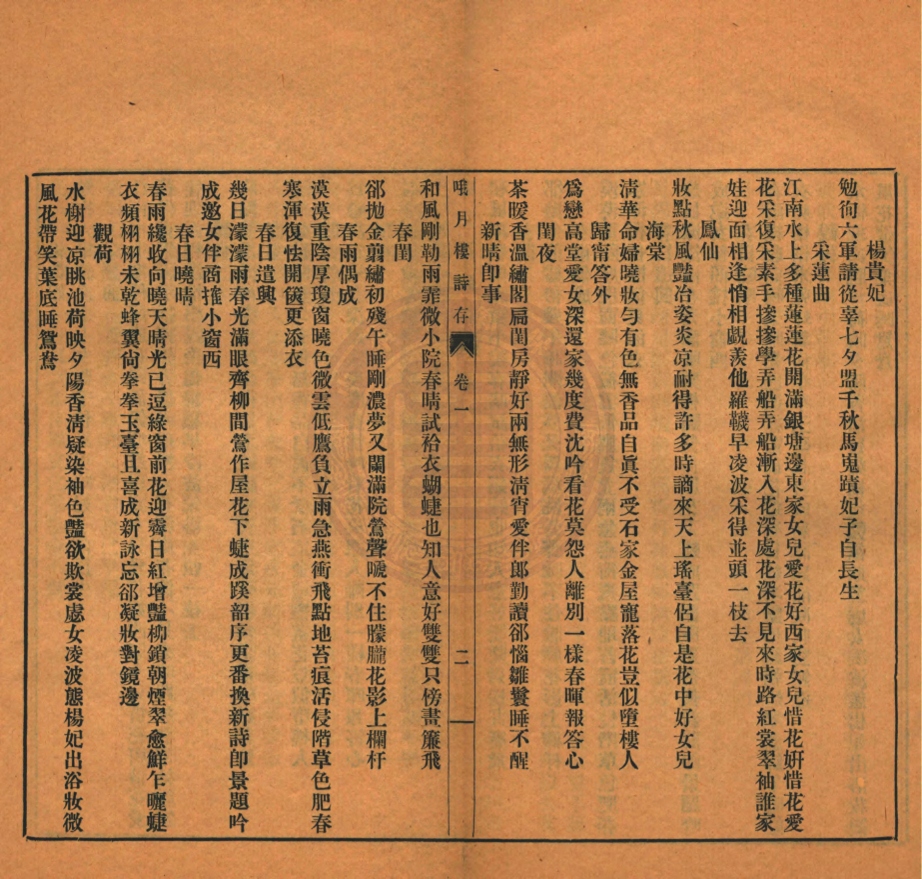 楊貴妃
勉徇六軍請從辜七夕盟千秋馬嵬蹟妃子自長生
采蓮曲
江南水上多種蓮蓮花開滿銀塘邊東家女兒愛花好西家女兒惜花妍惜花愛
花采復采素手摻摻學弄船弄船漸入花深處花深不見來時路紅裳翠袖誰家
娃迎面相逢悄相覷羨他羅韈早凌波采得並頭一枝去
鳳仙
妝點秋風豔冶姿炎凉耐得許多時謫來天上瑤臺侶自是花中好女兒
海棠
清華命婦曉妝勻有色無香品自眞不受石家金屋寵落花豈似墮樓人
歸甯答外
爲戀高堂愛女深還家幾度費沈吟看花莫怨人離別一樣春暉報答心
閨夜
茶暖香溫繡閣扃閨房靜好兩無形淸宵愛伴郎勤讀郤惱雛鬟睡不醒
新晴卽事
哦月樓詩存 卷一 二
和風剛勒雨霏微小院春晴試袷衣蝴蜨也知人意好雙雙只傍畫簾飛
春閨
郤拋金翦繡初殘午睡剛濃夢又闌滿院鶯聲嗁不住朦朧花影上欄杆
春雨偶成
漠漠重陰厚瓊窗曉色微雲低鷹負立雨急燕衝飛點地苔痕活侵階草色肥春
寒渾復怯開篋更添衣
春日遣興
幾日濛濛雨春光滿眼齊柳間鶯作屋花下蜨成蹊韶序更番換新詩卽景題吟
成邀女伴商搉小窗西
春日曉晴
春雨纔收向曉天晴光已逗綠窗前花迎霽日紅增豔柳鎖朝煙翠愈鮮乍曬蜨
衣頻栩栩未乾蜂翼尙拳拳玉臺且喜成新詠忘郤凝妝對鏡邊
觀荷
水榭迎凉眺池荷映夕陽香淸疑染袖色豔欲欺裳處女凌波態楊妃出浴妝微
風花帶笑葉底睡鴛鴦